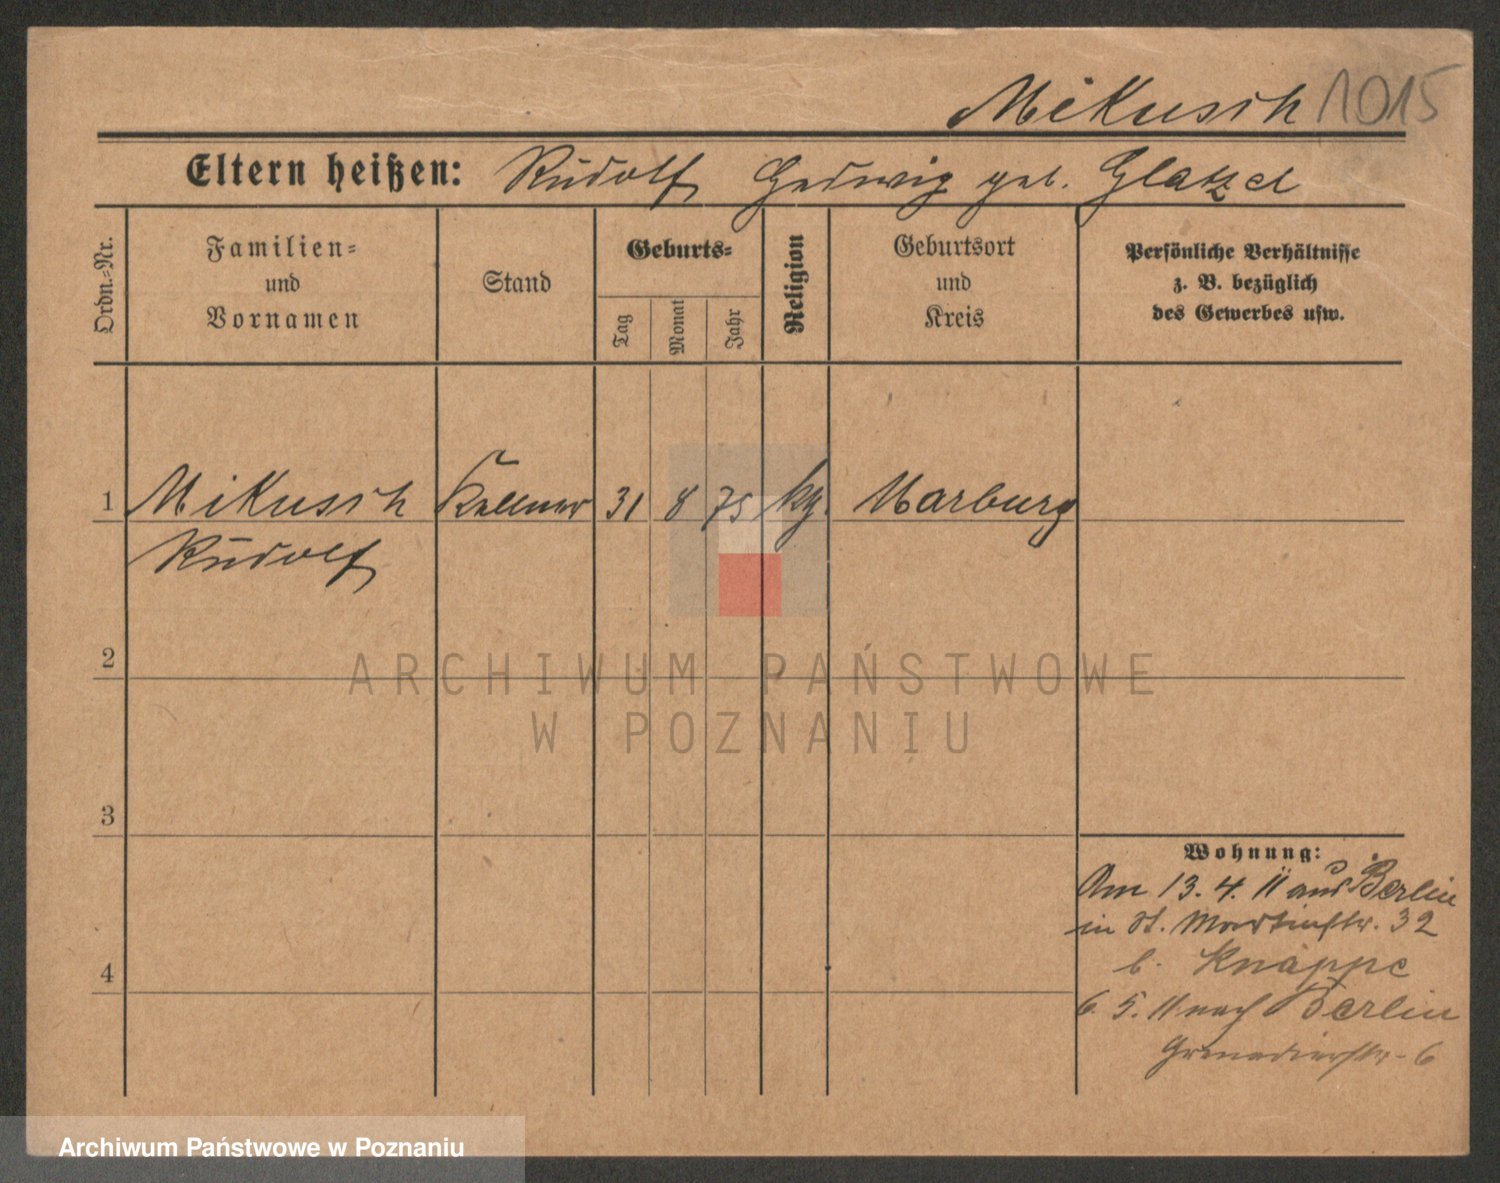 Mikusch 1015
Eltern heißen: Rudolf Hedwig geb. Glatzel
Ordn.-Nr.
Familien-
und
Vornamen
Stand
Geburts-
Tag
Monat
Jahr
Religion
Geburtsort
und
Kreis
Persönliche Verhältnisse
z. B. bezüglich
des Gewerbes usw.
1 Mikusch Kellner 31 8 75 kg. Marburg
Rudolf
2
3
4
Wohnung:
Am 13. 4. 11 aus Berlin
in St. Martinstr. 32
b. Knappe
6. 5. 11 nach Berlin
Grenadierstr. 6
ARCHIWUM PAŃSTWOWE
W POZNANIU
Archiwum Państwowe w Poznaniu